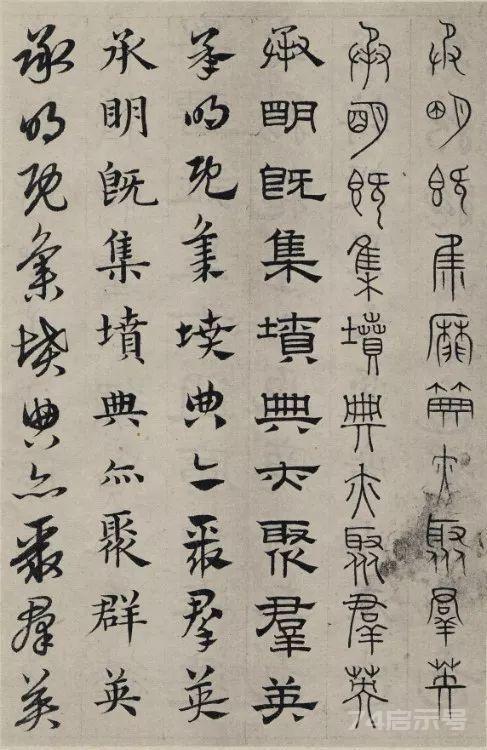 承明既集墳典亦聚羣英
承明既集墳典亦聚羣英
承明既集墳典亦聚羣英
承明既集墳典亦聚羣英
承明既集墳典亦聚群英
承明既集墳典亦聚羣英
74启示号